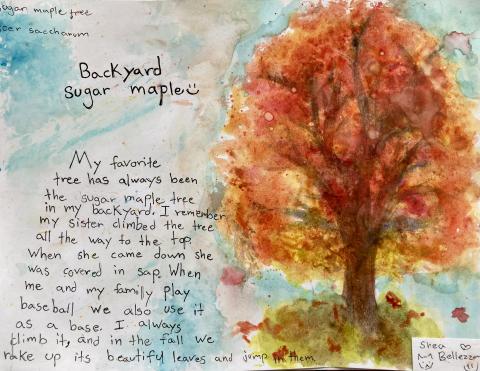 sugar maple tree
acer saccharum
Backyard
sugar maple
My favorite
tree has always been
the sugar maple tree
in my backyard. I remember
my sister climbed the tree
all the way to the top.
When she came down she
was covered in sap. When
me and my family play
baseball we also use it
as a base. I always
climb it, and in the fall we
rake up its beautiful leaves and jump in them.
Shea
M Bellezza